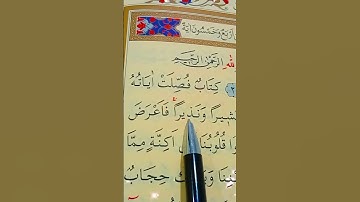 اَرْبَعٌ وَخَمْسُونَ اٰيَةً
اللّٰهِ الرَّحْمٰنِ الرَّحٖيمِ
كِتَابٌ فُصِّلَتْ اٰيَاتُهُ
بَشٖيراً وَنَذٖيراً فَاَعْرَضَ
قُلُوبُنَا فٖٓي اَكِنَّةٍ مِمَّا
حِجَابٌ